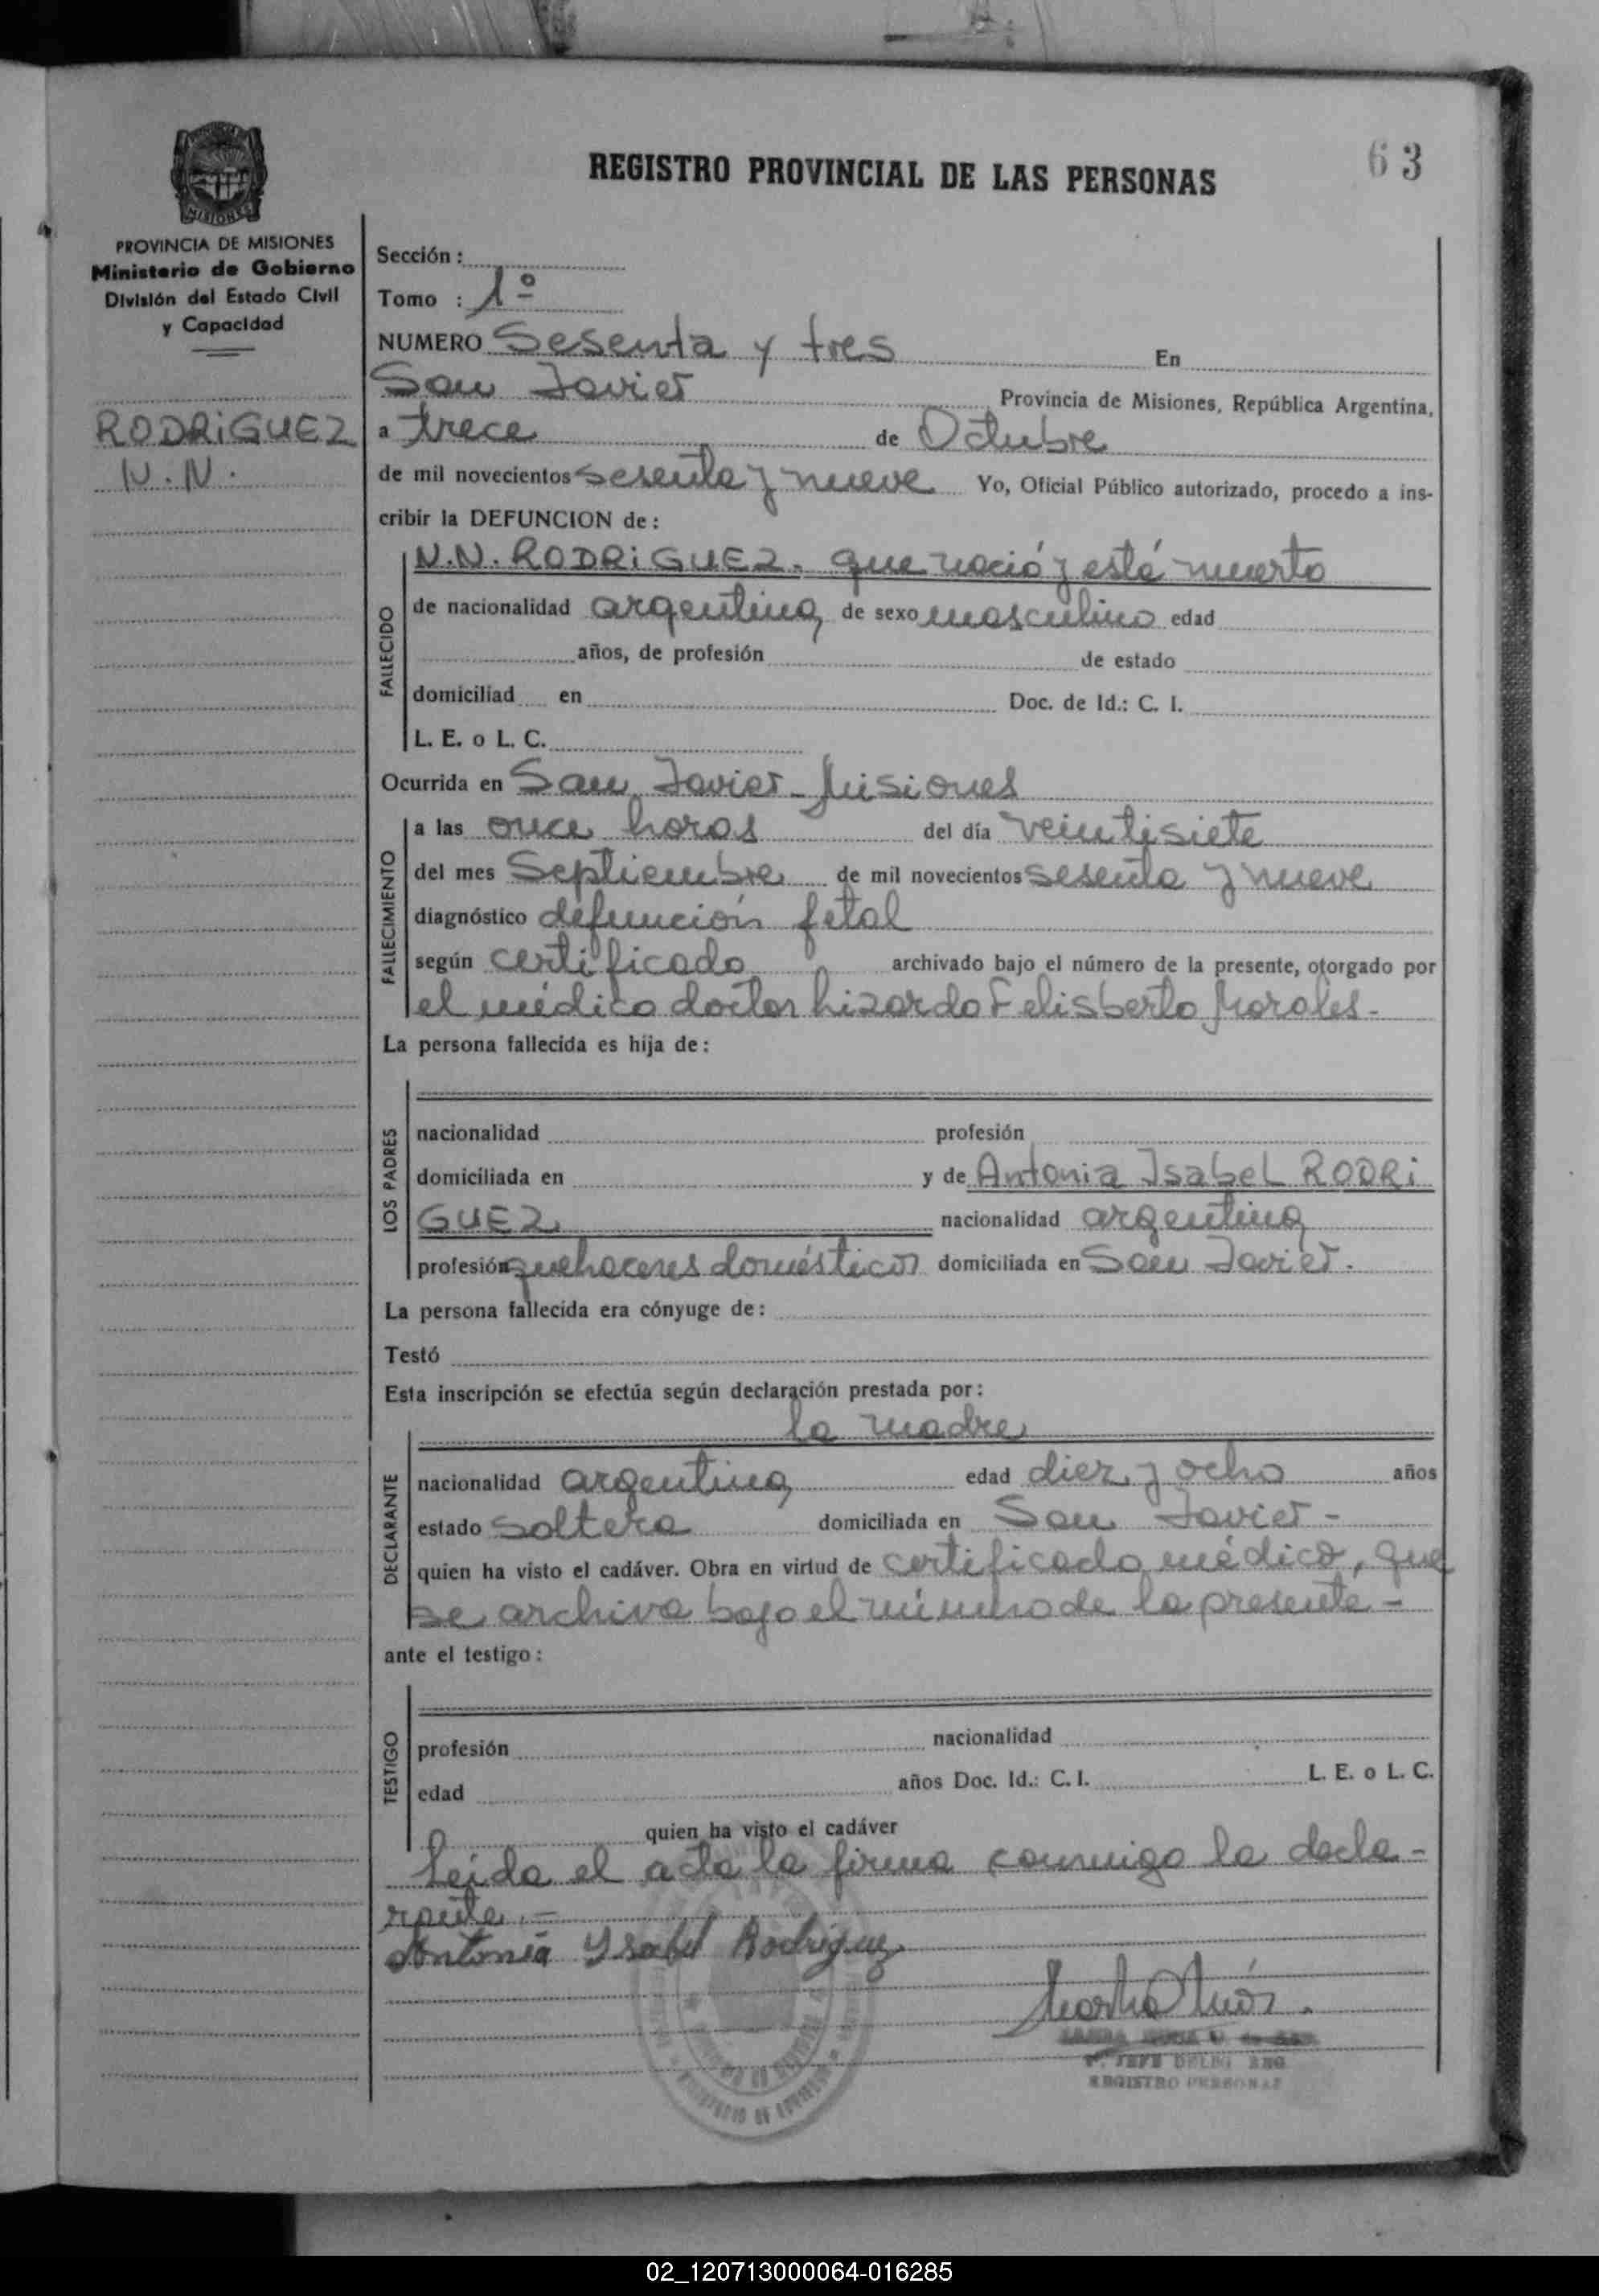 63
REGISTRO PROVINCIAL DE LAS PERSONAS
MISIONES
PROVINCIA DE MISIONES
Ministerio de Gobierno
División del Estado Civil
y Capacidad
RODRIGUEZ
N.N.
Sección :
Tomo : 1º
NUMERO Sesenta y tres En
San Javier Provincia de Misiones, República Argentina,
a trece de Octubre
de mil novecientos sesenta y nueve Yo, Oficial Público autorizado, procedo a ins-
cribir la DEFUNCION de :
FALLECIDO
N.N. RODRIGUEZ. que nació y está muerto
de nacionalidad argentina de sexo masculino edad
años, de profesión de estado
domiciliad en Doc. de Id.: C. I.
L. E. o L. C.
Ocurrida en San Javier - Misiones
FALLECIMIENTO
a las once horas del día veintisiete
del mes Septiembre de mil novecientos sesenta y nueve
diagnóstico defunción fetal
según certificado archivado bajo el número de la presente, otorgado por
el médico doctor Lizardo Felisberto Morales.-
La persona fallecida es hija de :
LOS PADRES
nacionalidad profesión
domiciliada en y de Antonia Isabel RODRI
GUEZ nacionalidad argentina
profesión quehaceres domésticos domiciliada en San Javier.
La persona fallecida era cónyuge de :
Testó
Esta inscripción se efectúa según declaración prestada por :
la madre
DECLARANTE
nacionalidad argentina edad diez y ocho años
estado soltera domiciliada en San Javier -
quien ha visto el cadáver. Obra en virtud de certificado médico, que
se archiva bajo el número de la presente -
ante el testigo :
TESTIGO
profesión nacionalidad
edad años Doc. Id.: C. I. L. E. o L. C.
quien ha visto el cadáver
Leída el acta la firma conmigo la decla-
rante.-
Antonia Ysabel Rodriguez
JEFE DELEG
REGISTRO PERSONAS
02_120713000064-016285